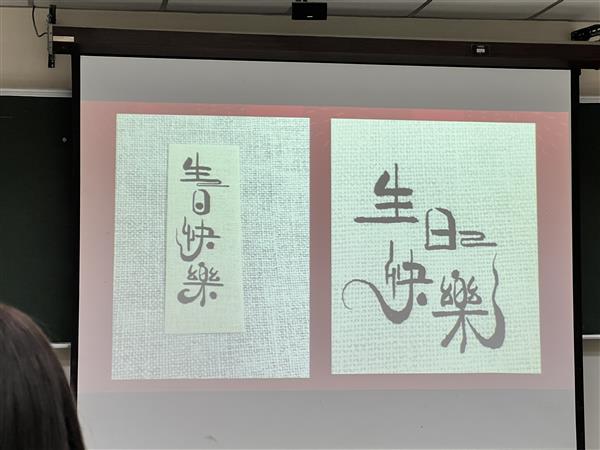 生
日
快
樂
生日
快樂